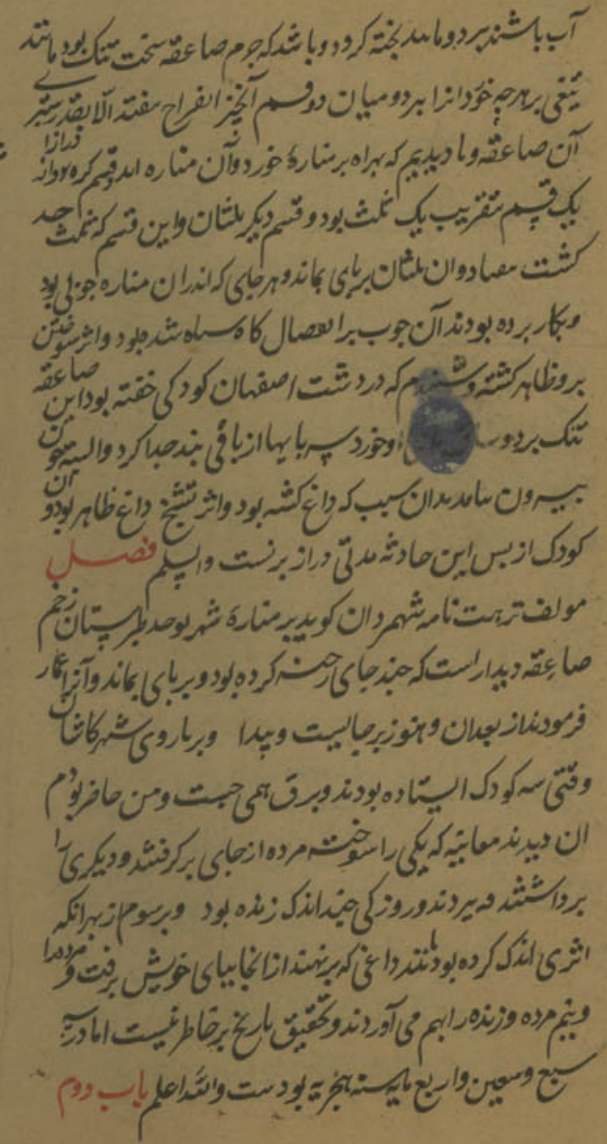 آب باشند ببرد و مانند پخته کردد و باشد که جرم صاعقه سخت تنک بود مانند
تیغی بر هرچه خود انرا ببرد و میان دو قسم آنچیز انفراج نیفتد الا بقدر ستبری
آن صاعقه و ما دیدیم که بهراه بر منارهٔ خورد و آن مناره اندر دو قسم کرد درازا
یک قسم بتقریب یک ثلث بود و قسم دیکر ثلثان و این قسم که ثلث
کشت بیفتاد و ان ثلثان بر پای بماند و هر جای که اندران مناره چوبی بود
و بکار برده بودند آن چوب سیاه شده بود و اثر سوختن
برو ظاهر کشته و شنیدم که در دشت اصفهان کودکی خفته بود این صاعقه
تنک برد و خورد پایها از باقی بند جدا کرد و البته خون
بیرون نیامد بدان سبب که داغ کشته بود و اثر تشنج داغ ظاهر بود و ان
کودک از پس این حادثه مدتی دراز بزیست والسلم فصل
مولف نزهت نامه شهمردان کوید بر منارهٔ شهر طبرستان زخم
صاعقه دیدار است که چند جای رخنه کرده بود و بر پای بماند و آنرا عمار
فرمودند از بعدان و هنوز بر جایست و پیدا و بر باروی شهر کاشان
وقتی سه کودک ایستاده بودند و برق همی جست و من حاضر بودم
ان دیدند معاینه که یکی را سوخته مرده از جای بر کرفتند و دیکری را
برداشتند و ببردند و روزکی چند اندک زنده بود و بر سوم از بهر انکه
اثری اندک کرده بود مانند داغی که بر نهند از انجا بپای خویش برفت و مرده را
و نیم مرده و زنده را بهم می آوردند و تحقیق تاریخ بر خاطر نیست اما در سنه
سبع وسبعین واربع مایه سنه هجریه بودست والله اعلم باب دوم